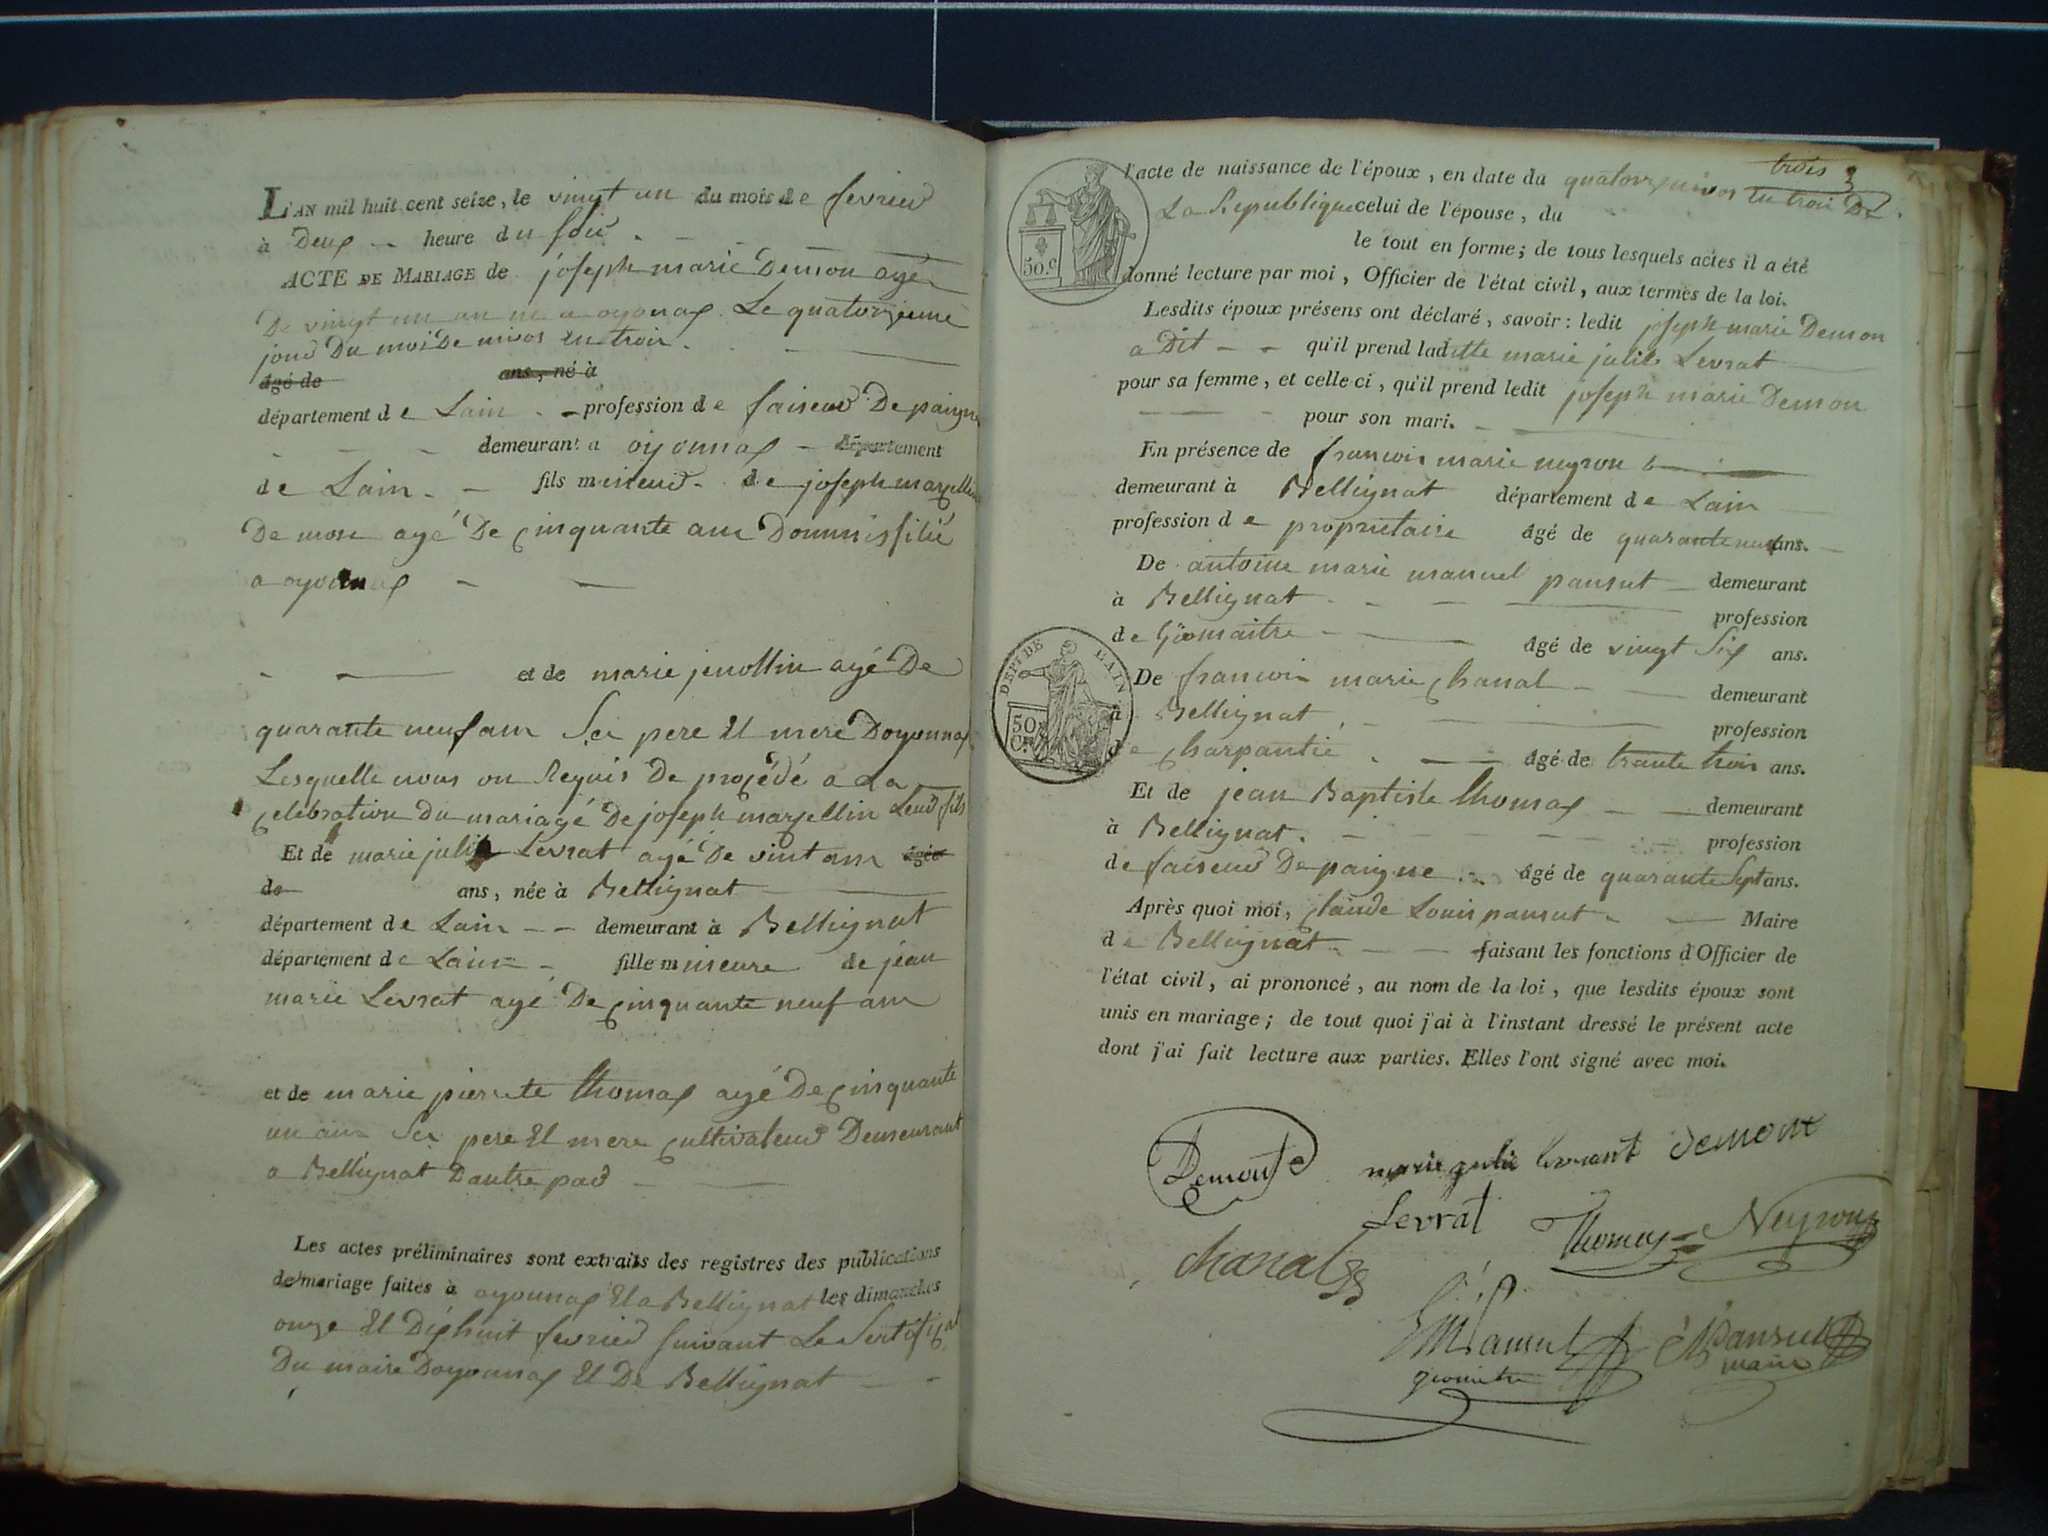 L'AN mil huit cent seize, le vingt un du mois de fevrier
à Deux heure du soir
ACTE DE MARIAGE de joseph marie Demon agé
De vingt un an né a oyonax Le quatorzieme
jour Du moi De nivos en troir
âgé de ans, né à
département de Lain profession de faiseur De paigne
demeurant a oiyonnax département
de Lain fils mineur de joseph marxellin
De mon agé De cinquante ans Dommissilié
a oyonnax
et de marie jenollin agé De
quarante neuf ans Ses pere Et mere Doyonnax
Lesquelle nous on Requis De proçédé a La
çelebration Du mariagé De joseph marxellin Leur fils
Et de marie julie Levrat agé De vint ans âgée
de ans, née à Bellignat
département de Lain demeurant à Bellignat
département de Lain fille mineure de jean
marie Levrat agé De çinquante neuf ans
et de marie pierrete thomax agé De çinquante
un ans Ses pere Et mere çultivateur Demeurant
a Bellignat Dautre par
Les actes préliminaires sont extraits des registres des publications
de mariage faites à oyonnax Et a Bellignat les dimanches
onze Et Dix huit fevrier suivant Le Sertifiçat
Du maire Doyonnax Et De Bellignat
trois 3
l'acte de naissance de l'époux, en date du quatorze nivos en troi De
La Republique celui de l'épouse, du
le tout en forme; de tous lesquels actes il a été
donné lecture par moi, Officier de l'état civil, aux termes de la loi.
Lesdits époux présens ont déclaré, savoir: ledit joseph marie Demon
a Dit qu'il prend laditte marie julie Levrat
pour sa femme, et celle ci, qu'il prend ledit joseph marie Demon
pour son mari.
En présence de francoir marie neyron
demeurant à Bellignat département de Lain
profession de proprietaire âgé de quarante neuf ans.
De antoine marie manuel pansut demeurant
à Bellignat profession
de Géomaitre âgé de vingt Six ans.
De francoir marie chanal demeurant
à Bellignat profession
de çharpantié âgé de trante trois ans.
Et de jean Baptiste thomax demeurant
à Bellignat profession
de faiseur De paigne âgé de quarante Sept ans.
Après quoi moi, Claude Louis pansut Maire
de Bellignat faisant les fonctions d'Officier de
l'état civil, ai prononcé, au nom de la loi, que lesdits époux sont
unis en mariage; de tout quoi j'ai à l'instant dressé le présent acte
dont j'ai fait lecture aux parties. Elles l'ont signé avec moi.
50.c
DEPT DE L'AIN
50
Cs
Demont marie julie levrat demont
Levrat Thomas Neyron
chanal
Pansut Pansut
géomètre maire